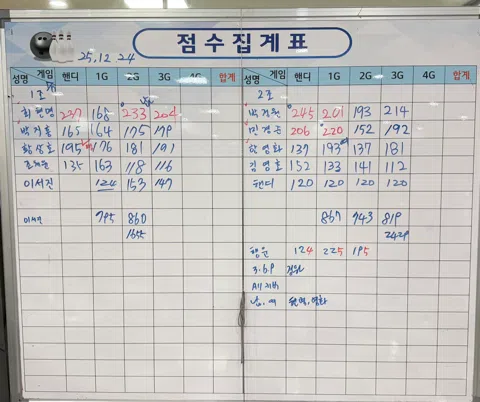 점수집계표
25.12.24
성명 게임 핸디 1G 2G 3G 4G 합계
1조
최현명 237 168 233 204
박기홍 165 164 175 179
황상호 195 176 181 191
135 163 118 116
이서진 124 153 147
이서진 795 860
1655
성명 게임 핸디 1G 2G 3G 4G 합계
2조
245 201 193 214
206 220 152 192
137 193 137 181
김영호 152 133 141 112
핸디 120 120 120 120
867 743 819
2429
행운 124 225 195
3.6.9
All 지비
남.여